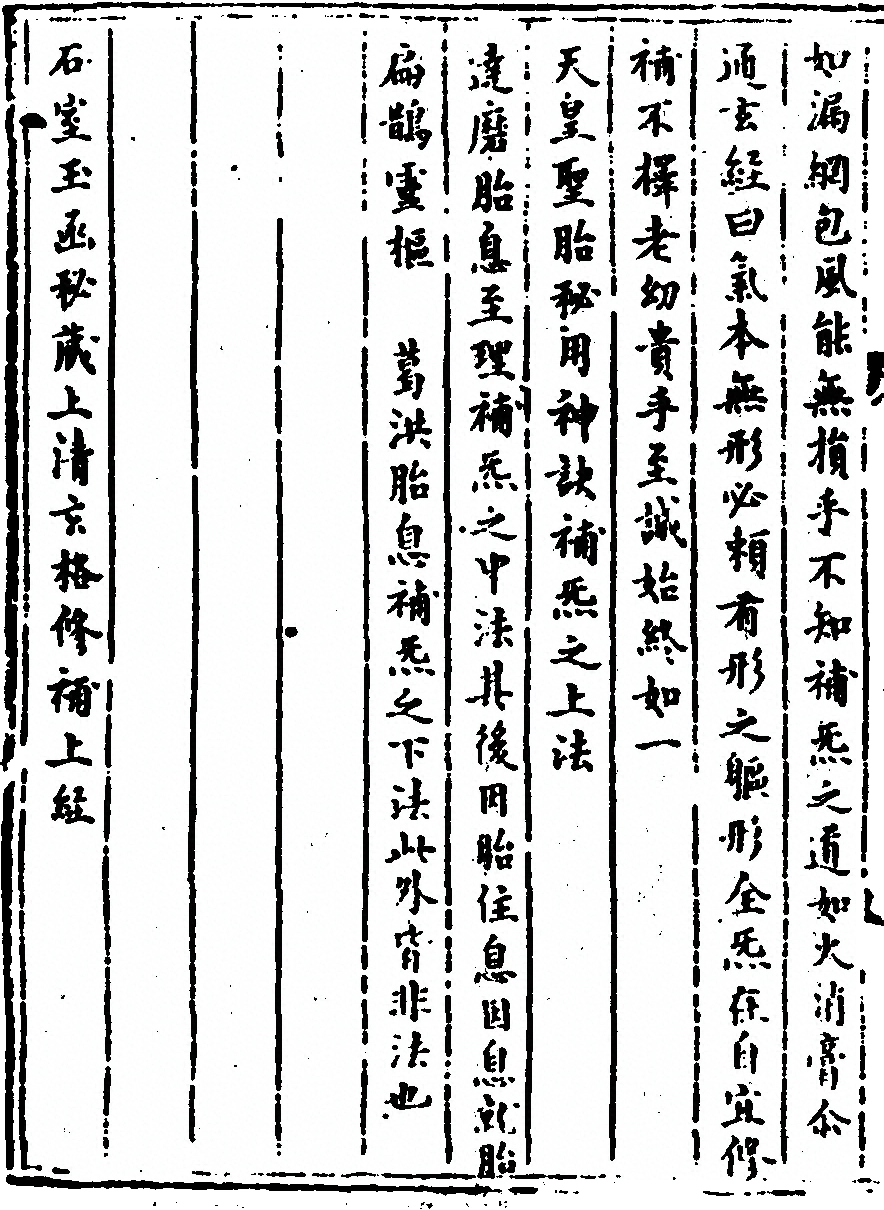 如漏網包風能無損乎不知補炁之道如火消膏不
通玄經曰氣本無形必賴有形之軀形全炁在自宜修
補不擇老幼貴乎至誠始終如一
天皇聖胎秘用神訣補炁之上法
達磨胎息至理補炁之中法其後因胎住息因息就胎
扁鵲靈樞 葛洪胎息補炁之下法此外皆非法也
石室玉函秘藏上清玄格修補上經